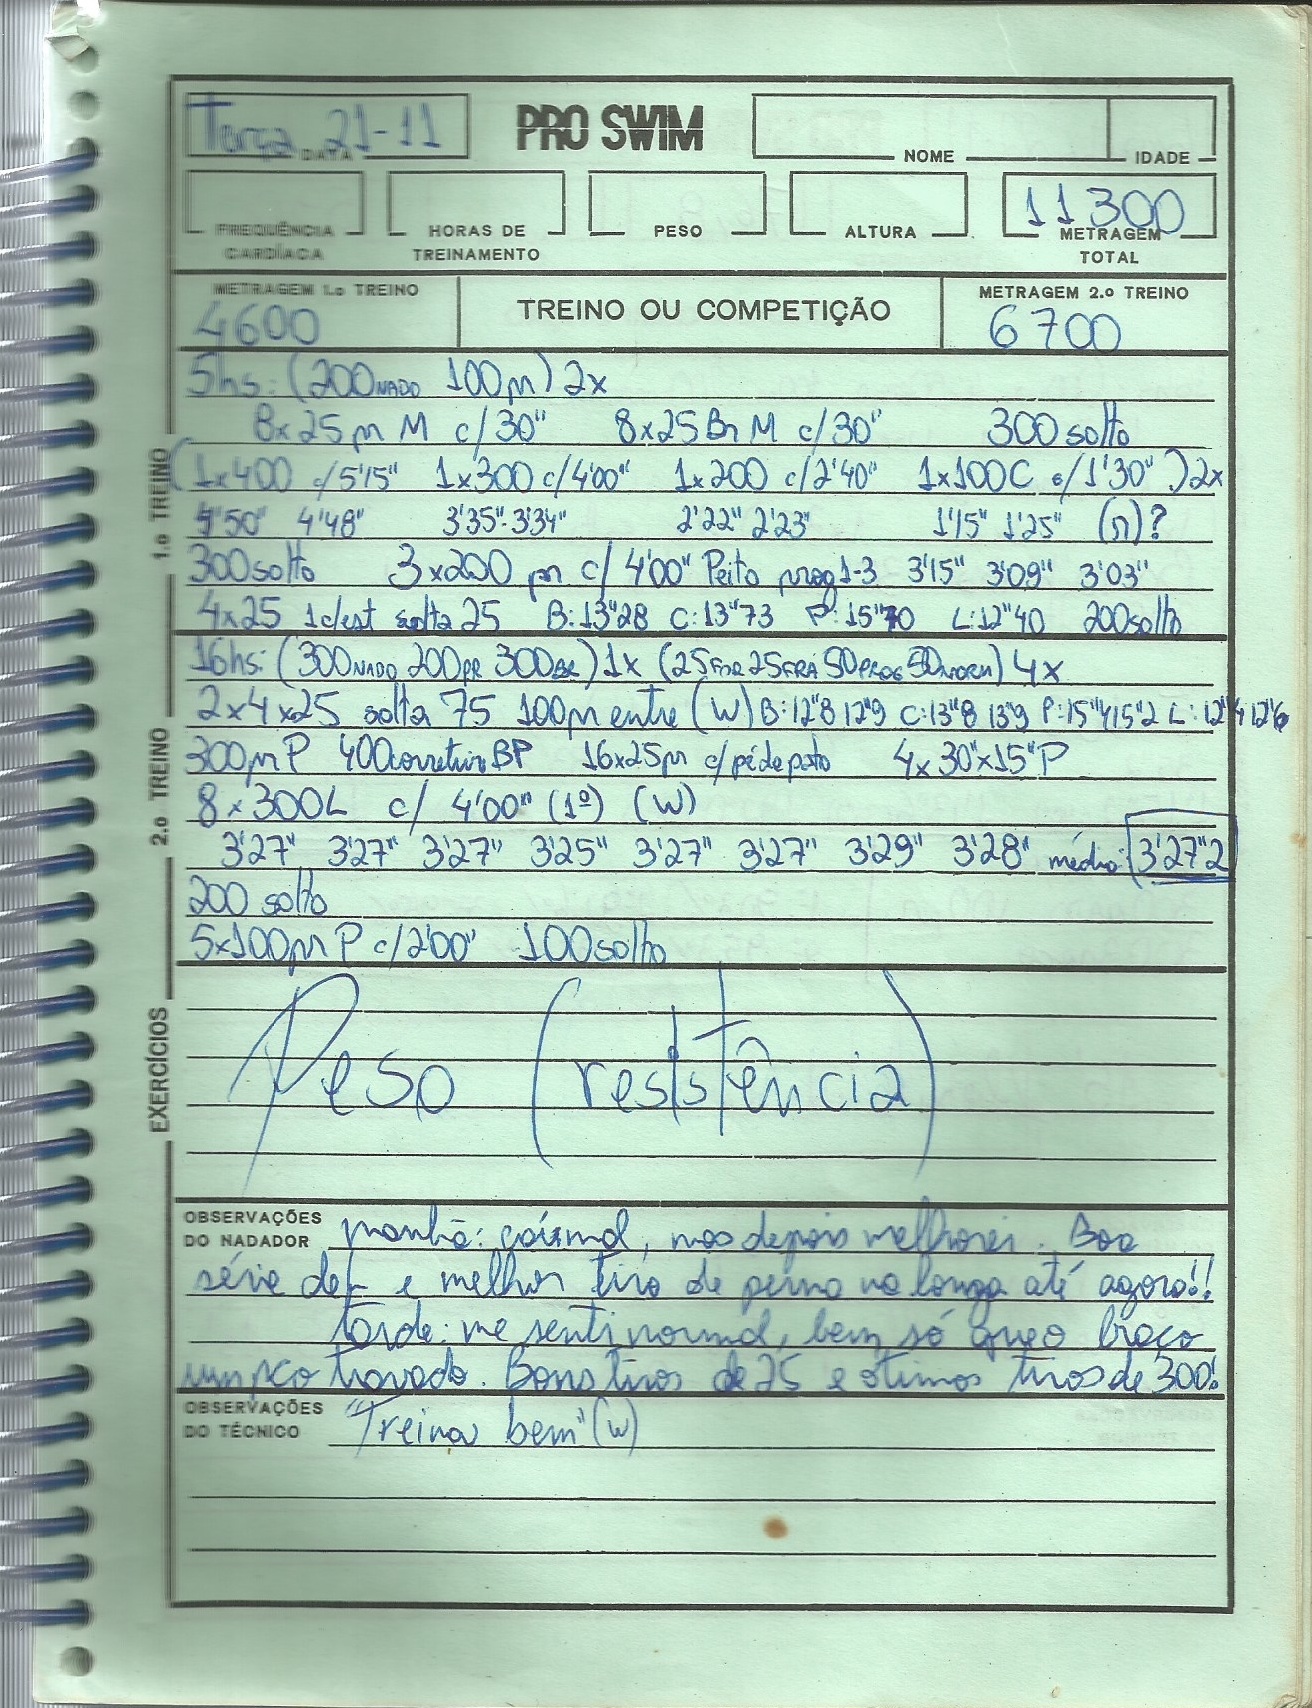 Terça 21-11
DATA
PRO SWIM
NOME
IDADE
FREQUÊNCIA CARDÍACA
HORAS DE TREINAMENTO
PESO
ALTURA
11300
METRAGEM TOTAL
METRAGEM 1.o TREINO
4600
TREINO OU COMPETIÇÃO
METRAGEM 2.o TREINO
6700
1.o TREINO
5hs: (200NADO 100pn) 2x
8x25pn M c/30" 8x25Br M c/30" 300 solto
(1x400 c/5'15" 1x300 c/4'00" 1x200 c/2'40" 1x100C c/1'30") 2x
4'50" 4'48" 3'35"-3'34" 2'22" 2'23" 1'15" 1'25" (n)?
300solto 3x200 pn c/ 4'00" Peito prog1-3 3'15" 3'09" 3'03"
4x25 1c/est solta 25 B:13"28 C:13"73 P:15"70 L:12"40 200solto
2.o TREINO
16hs: (300NADO 200PR 300BR) 1x (25FOR 25FRA 50PROG 50NORM) 4x
2x4x25 solta 75 100pn entre (W) B:12"8 12"9 C:13"8 13"9 P:15"4 15"2 L:12"4 12"6
300pn P 400corretivo BP 16x25pn c/pé de pato 4x30"x15"P
8x300L c/ 4'00" (1º) (W)
3'27" 3'27" 3'27" 3'25" 3'27" 3'27" 3'29" 3'28" média: 3'27"2
200 solto
5x100pn P c/2'00" 100solto
EXERCÍCIOS
Peso (resistência)
OBSERVAÇÕES DO NADADOR
manhã: caí mal, mas depois melhorei. Boa
série de L e melhor tiro de perna na longa até agora!!
tarde: me senti normal, bem só que o braço
um pco travado. Bons tiros de 25 e ótimos tiros de 300!
OBSERVAÇÕES DO TÉCNICO
"Treina bem" (W)